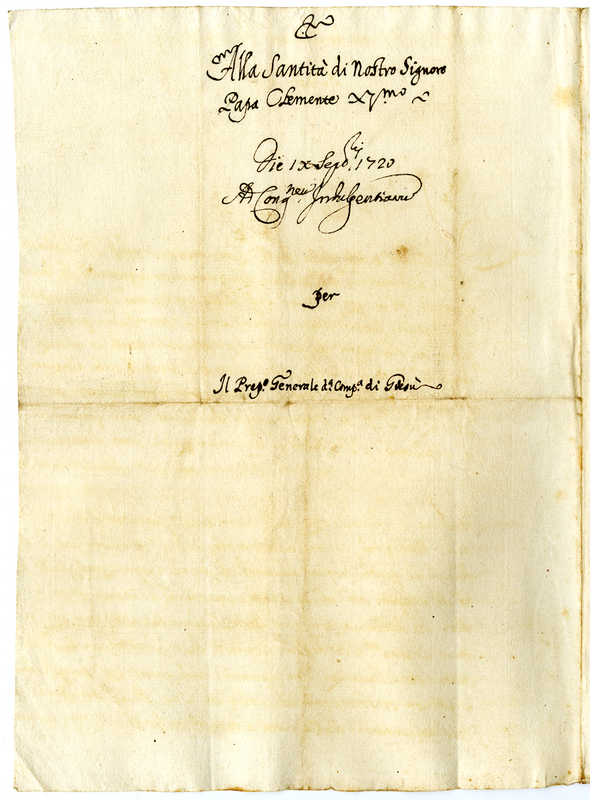 Alla Santità di Nostro Signore
Papa Clemente XI.mo
Die 1x Sep.bris 1720
Ad Cong.nem Indulgentiarum
per
Il Prep.o Generale d.a Comp.a di Giesù